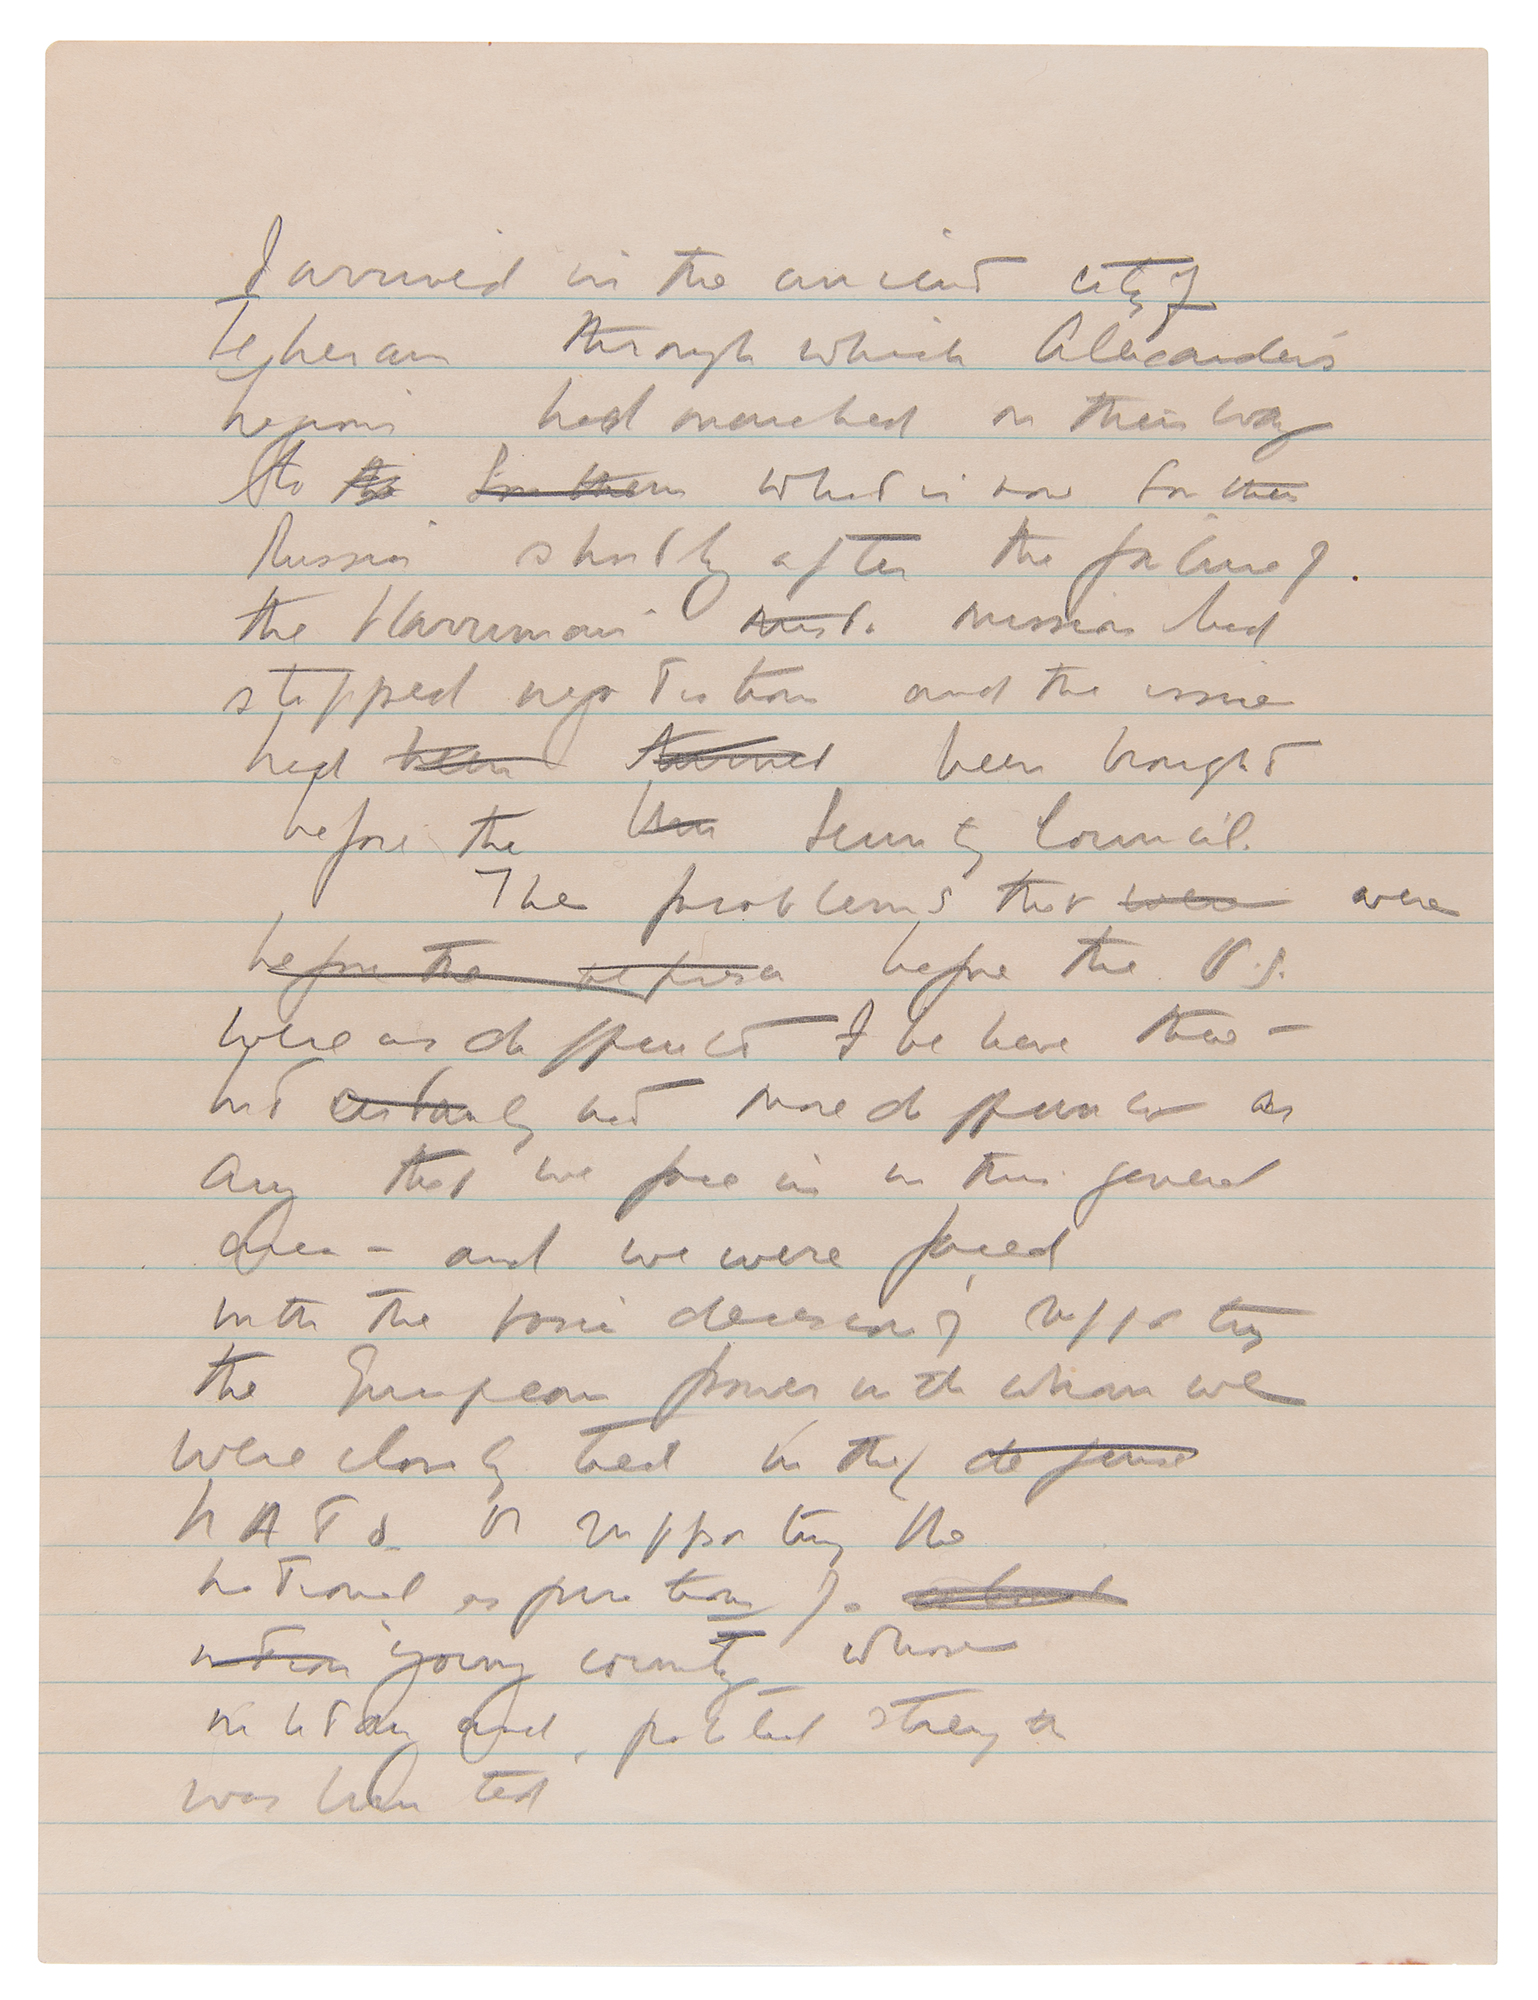 I arrived in the ancient city of
Teheran through which Alexander's
legions had marched on their way
to the Southern what is now Southern
Russia shortly after the failure of
the Harriman mission had
stopped negotiations and the issue
had been turned been brought
before the Security Council.
The problems that were were
before the before the U.S.
were as difficult I believe there -
but certainly not more difficult as
any that we face in in this general
area - and we were faced
with the basic decision of supporting
the European powers with whom we
were closely tied in the defense
NATO or supporting the
national aspirations of a
nation young country whose
military and political strength
was limited